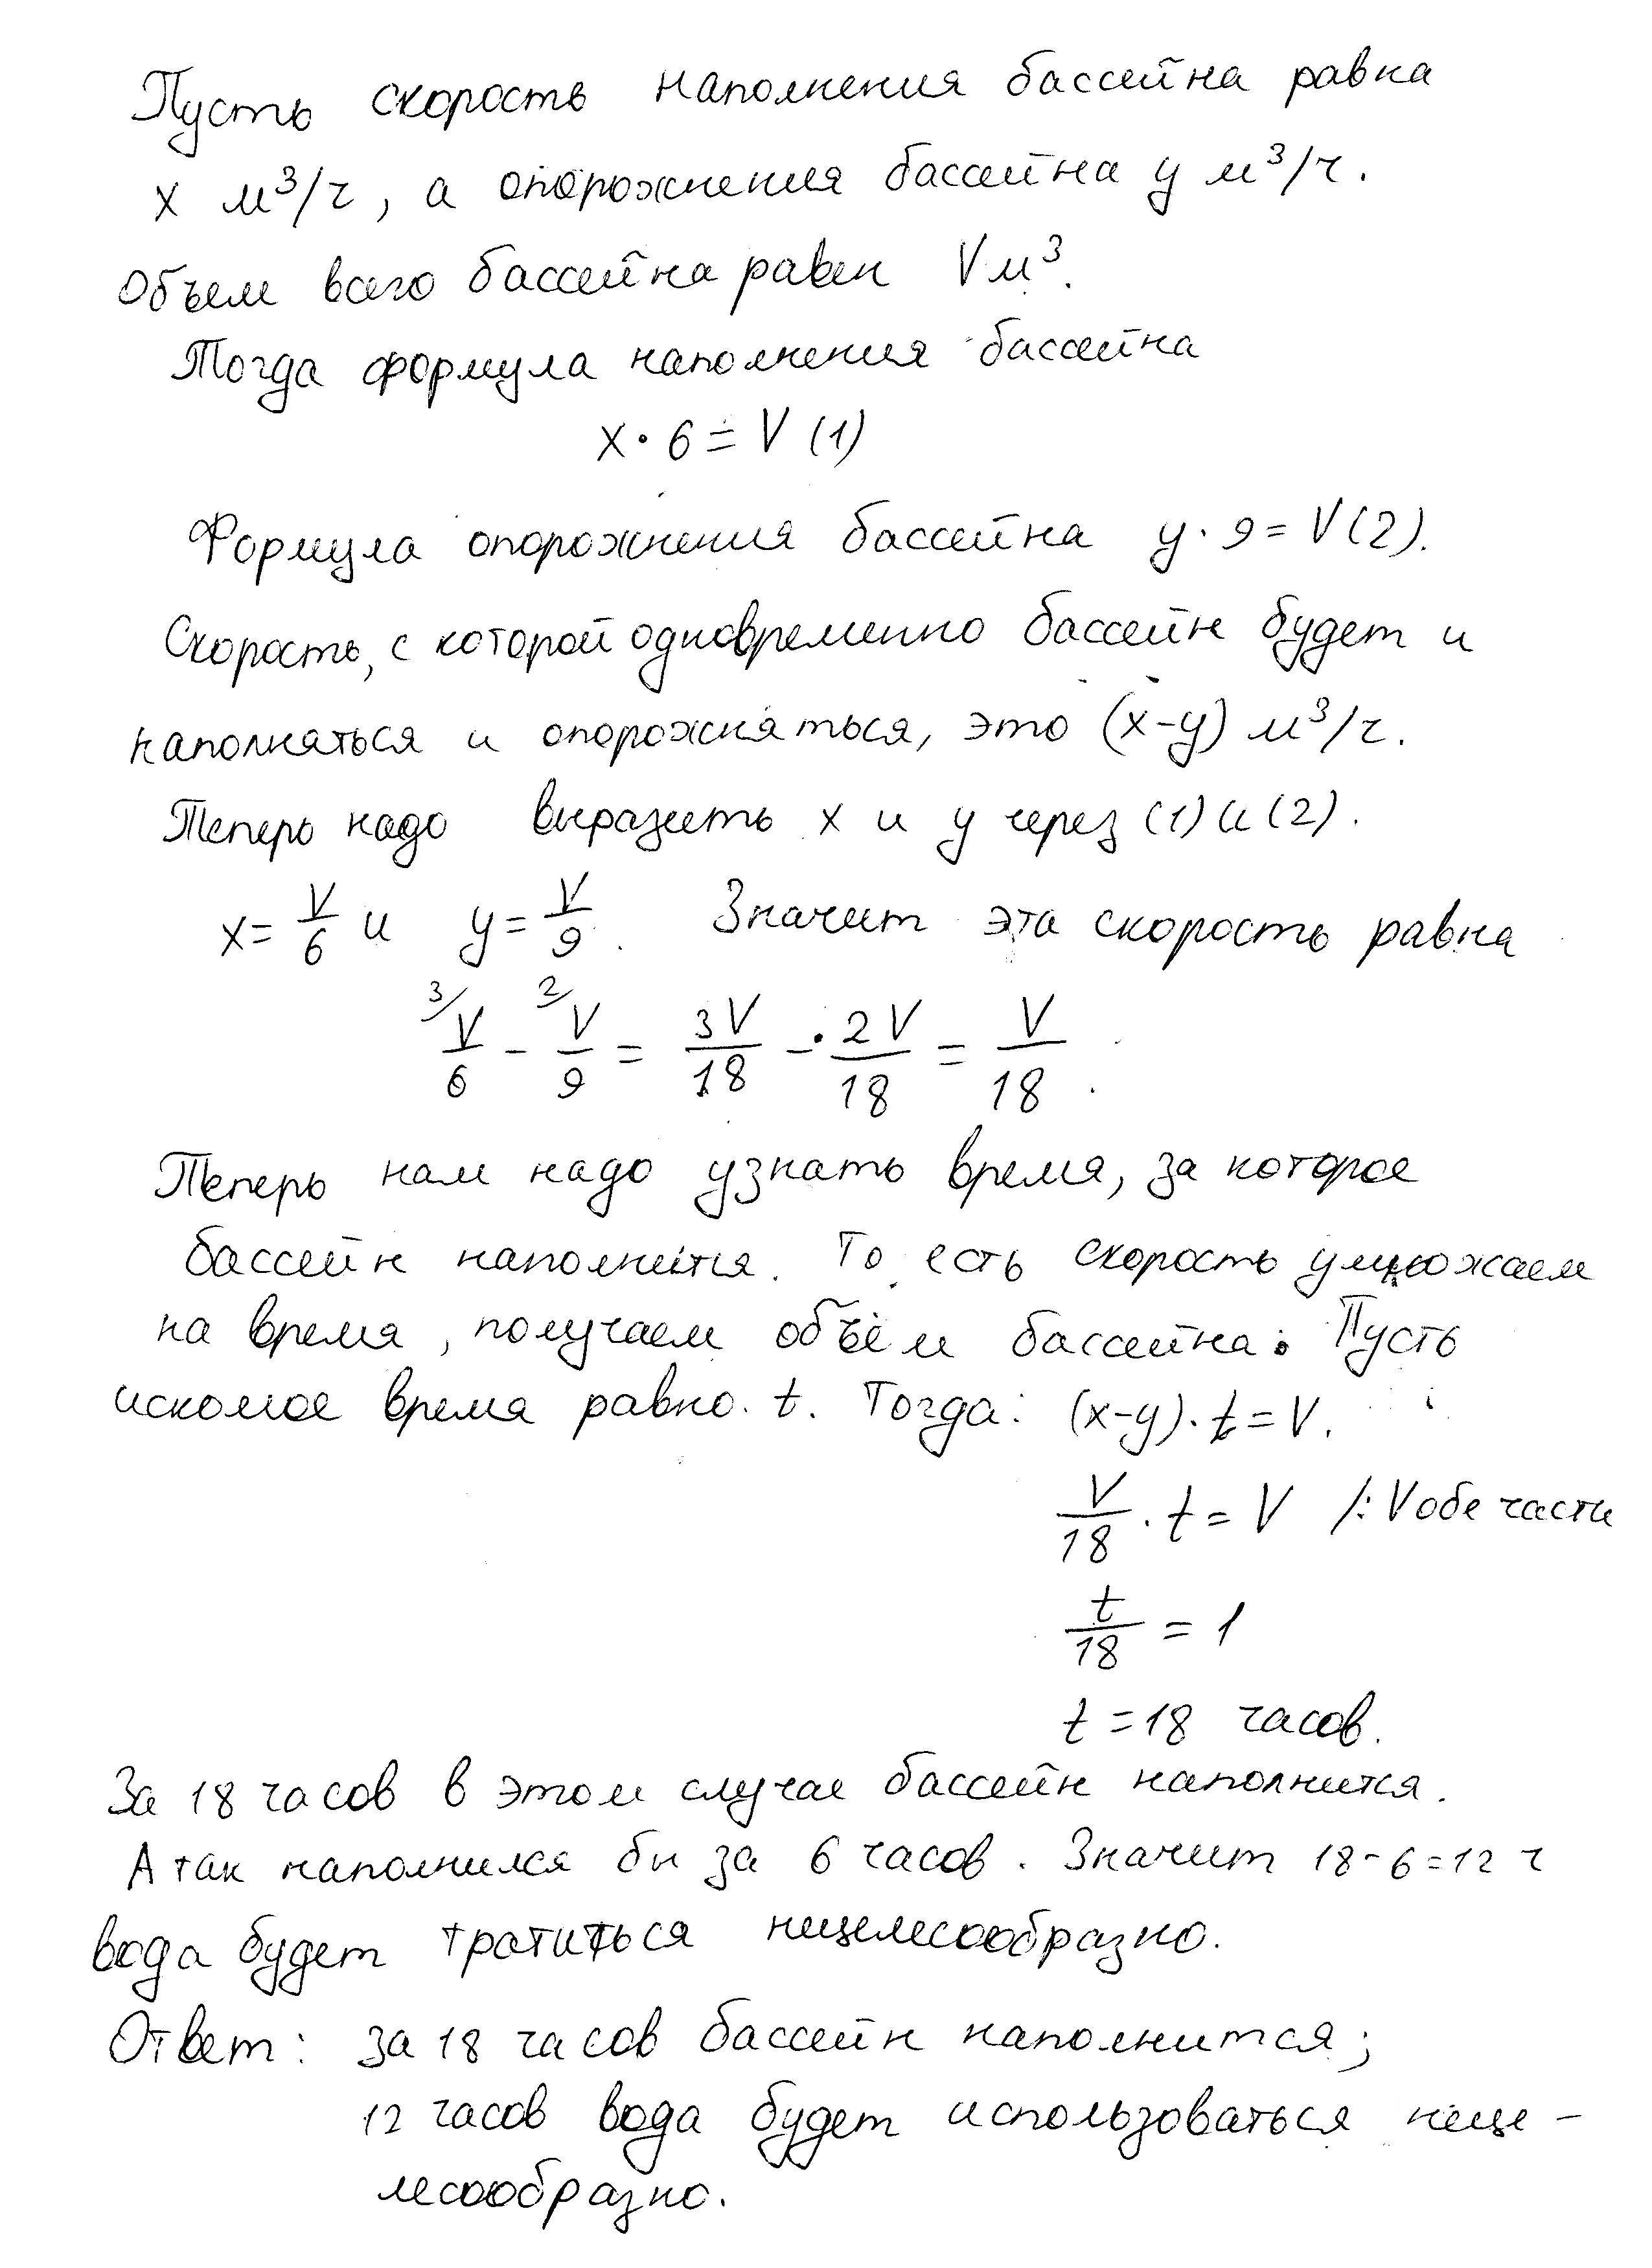 Пусть скорость наполнения бассейна равна
x м³/ч, а опорожнения бассейна y м³/ч.
Объем всего бассейна равен V м³.
Тогда формула наполнения бассейна
x · 6 = V (1)
Формула опорожнения бассейна y · 9 = V (2).
Скорость, с которой одновременно бассейн будет и
наполняться и опорожняться, это (x-y) м³/ч.
Теперь надо выразить x и y через (1) и (2).
x = V/6 и y = V/9. Значит эта скорость равна
3/ V/6 - 2/ V/9 = 3V/18 - 2V/18 = V/18.
Теперь нам надо узнать время, за которое
бассейн наполнится. То есть скорость умножаем
на время, получаем объём бассейна. Пусть
искомое время равно t. Тогда: (x-y) · t = V.
V/18 · t = V /: V обе части
t/18 = 1
t = 18 часов.
За 18 часов в этом случае бассейн наполнится.
А так наполнился бы за 6 часов. Значит 18-6=12 ч
вода будет тратиться нецелесообразно.
Ответ: за 18 часов бассейн наполнится;
12 часов вода будет использоваться неце-
лесообразно.